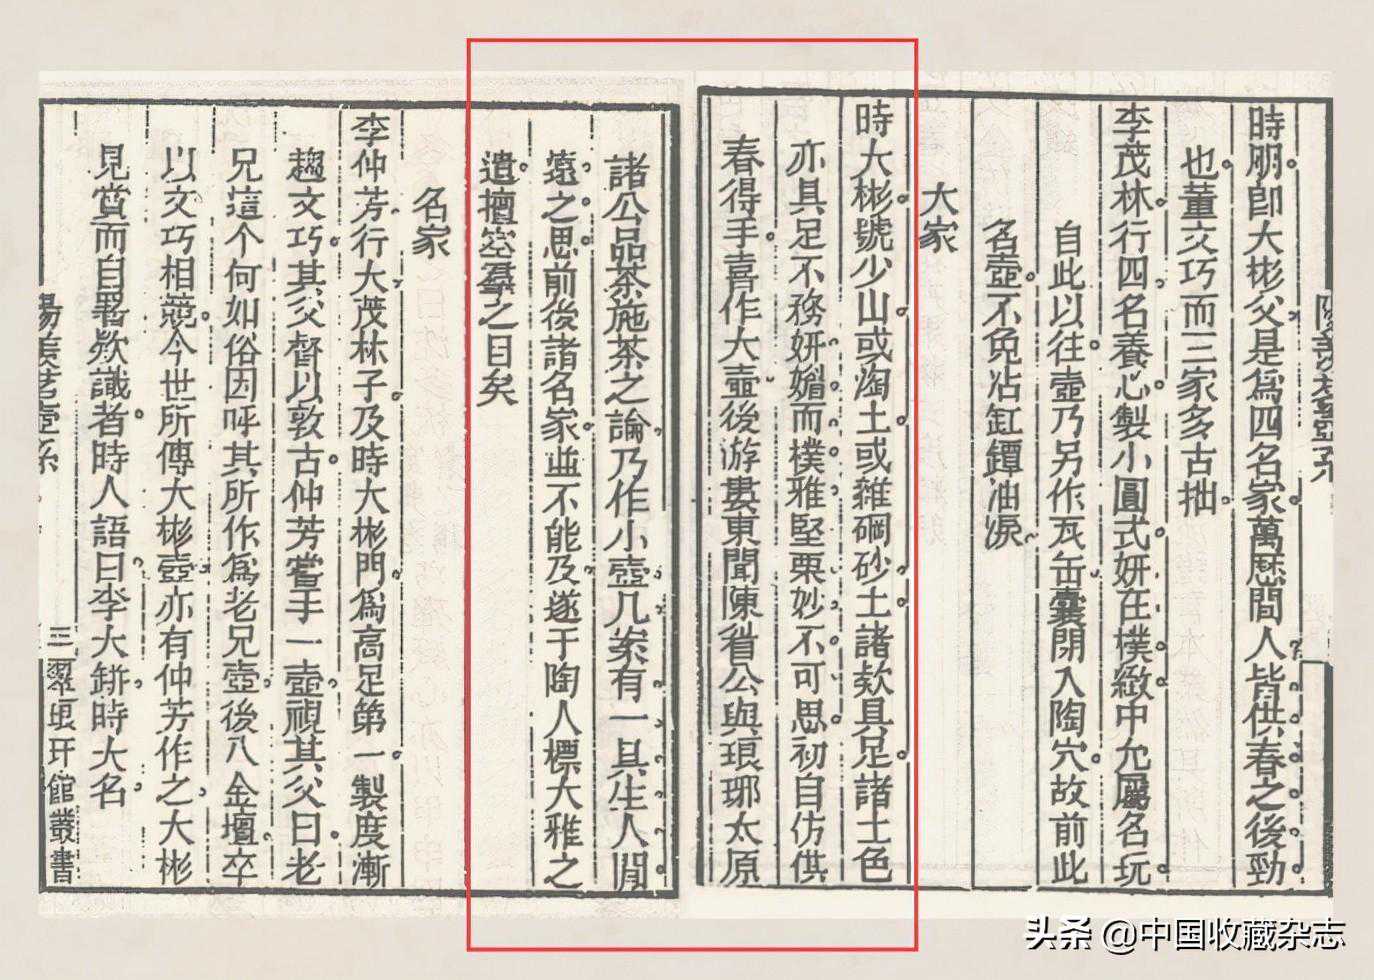 時朋卽大彬父是爲四名家萬厯間人皆供春之後勁
也董文巧而三家多古拙
李茂林行四名養心製小圓式妍在樸緻中允屬名玩
自此以往壺乃另作瓦缶囊閉入陶穴故前此
名壺不免沾缸罈油淚
大家
時大彬號少山或淘土或雜碙砂土諸欵具足諸土色
亦具足不務妍媚而樸雅堅栗妙不可思初自仿供
春得手喜作大壺後游婁東聞陳眉公與琅琊太原
諸公品茶施茶之論乃作小壺几案有一具生人閒
遠之思前後諸名家並不能及遂于陶人標大雅之
遺擅空羣之目矣
名家
李仲芳行大茂林子及時大彬門爲高足第一製度漸
趨文巧其父督以敦古仲芳嘗手一壺視其父曰老
兄這个何如俗因呼其所作爲老兄壺後入金壇卒
以文巧相競今世所傳大彬壺亦有仲芳作之大彬
見賞而自署欵識者時人語曰李大缾時大名
陽羨茗壺系
三
翠琅玕館叢書
头条 @中国收藏杂志